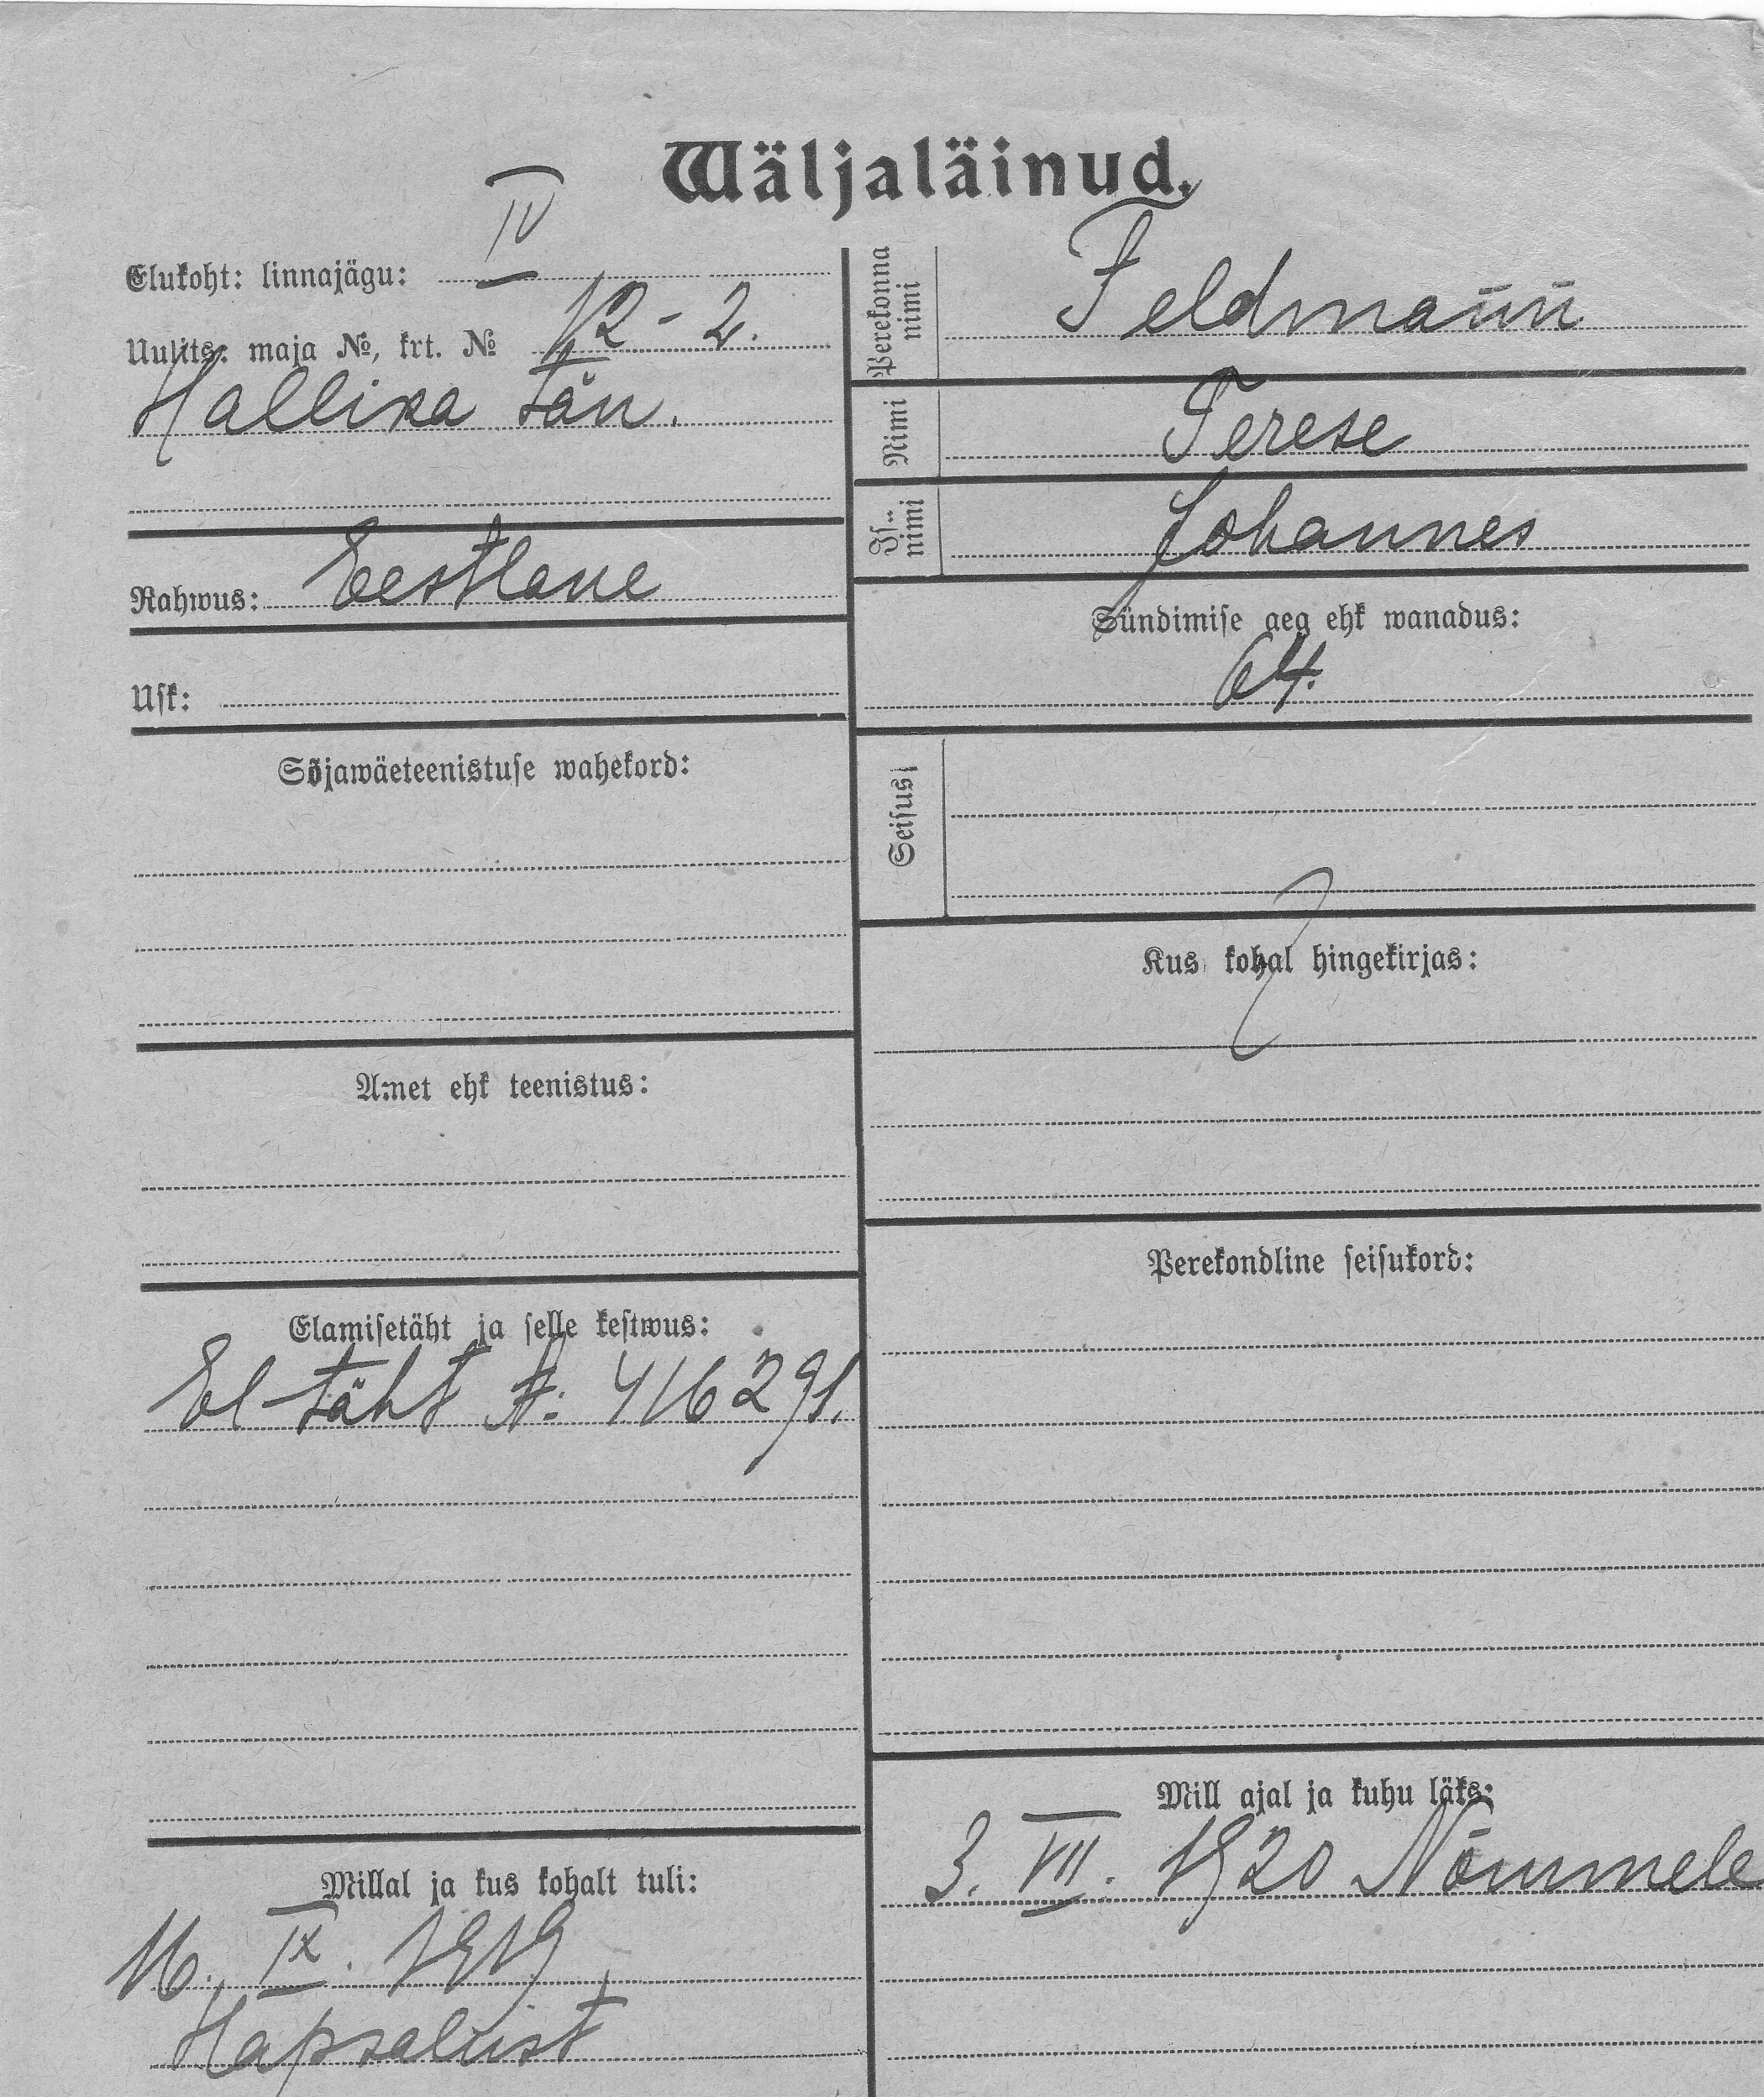 Wäljaläinud.
Elukoht: linnajägu: IV
Uulits: maja №, krt. № 12 - 2.
Hallika tän.
Rahwus: Eestlane
Usk:
Sõjawäeteenistuse wahekord:
Amet ehk teenistus:
Elamisetäht ja selle kestwus:
El-täht №: 416291.
Millal ja kus kohalt tuli:
16. IX. 1919
Hapsalust
Perekonna nimi
Feldmann
Nimi
Terese
Isa nimi
Johannes
Sündimise aeg ehk wanadus:
64.
Seisus
Kus kohal hingekirjas:
Perekondline seisukord:
Mill ajal ja kuhu läks:
3. VII. 1920 Nõmmele